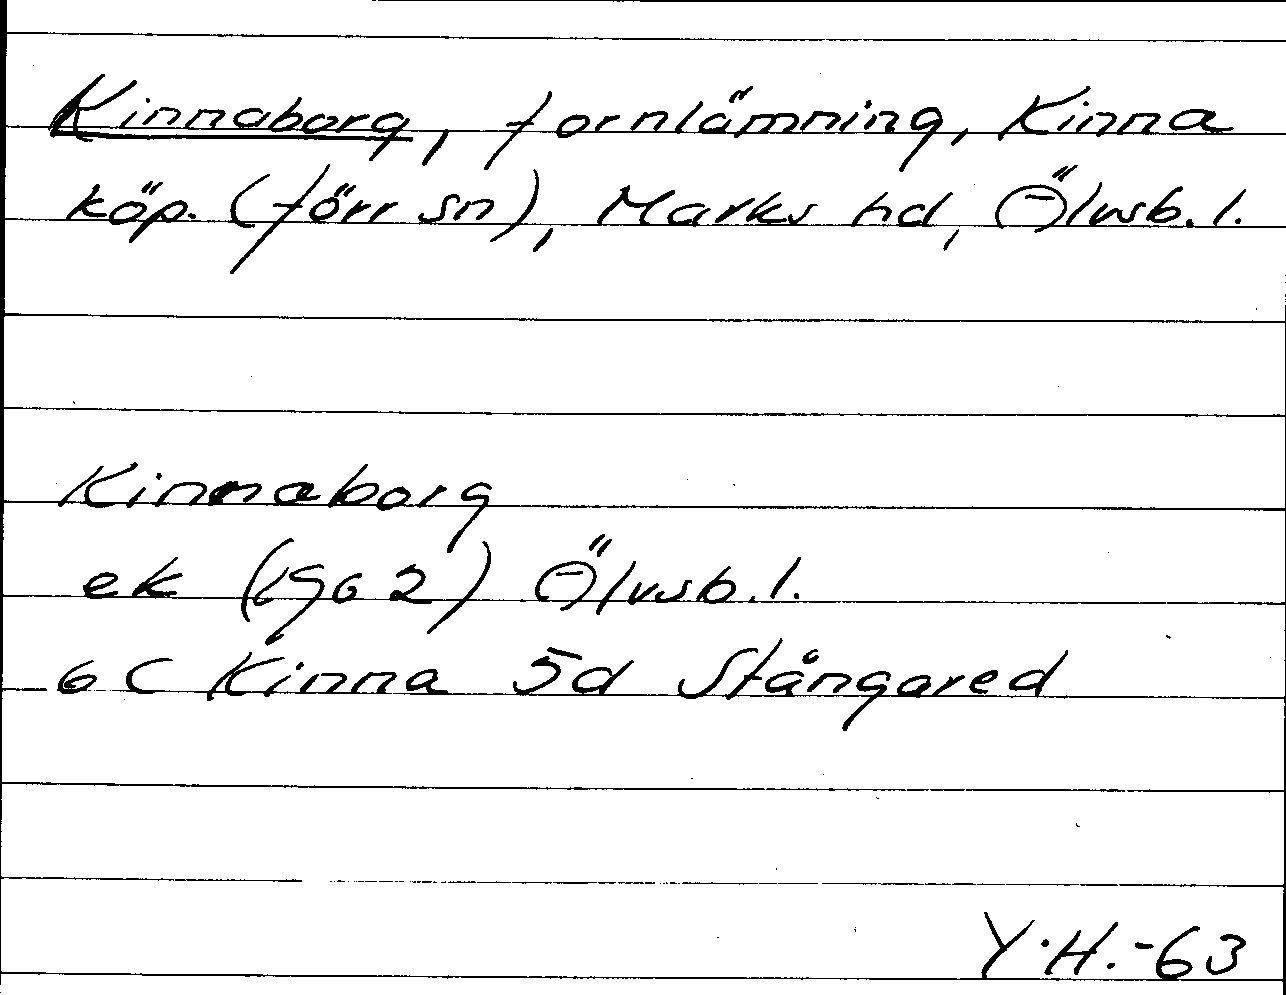 Kinnaborg, fornlämning, Kinna
köp. (förr sn), Marks hd, Älvsb. l.
Kinnaborg
ek (1962) Älvsb. l.
6 C Kinna 5d Stångared
Y.H.-63